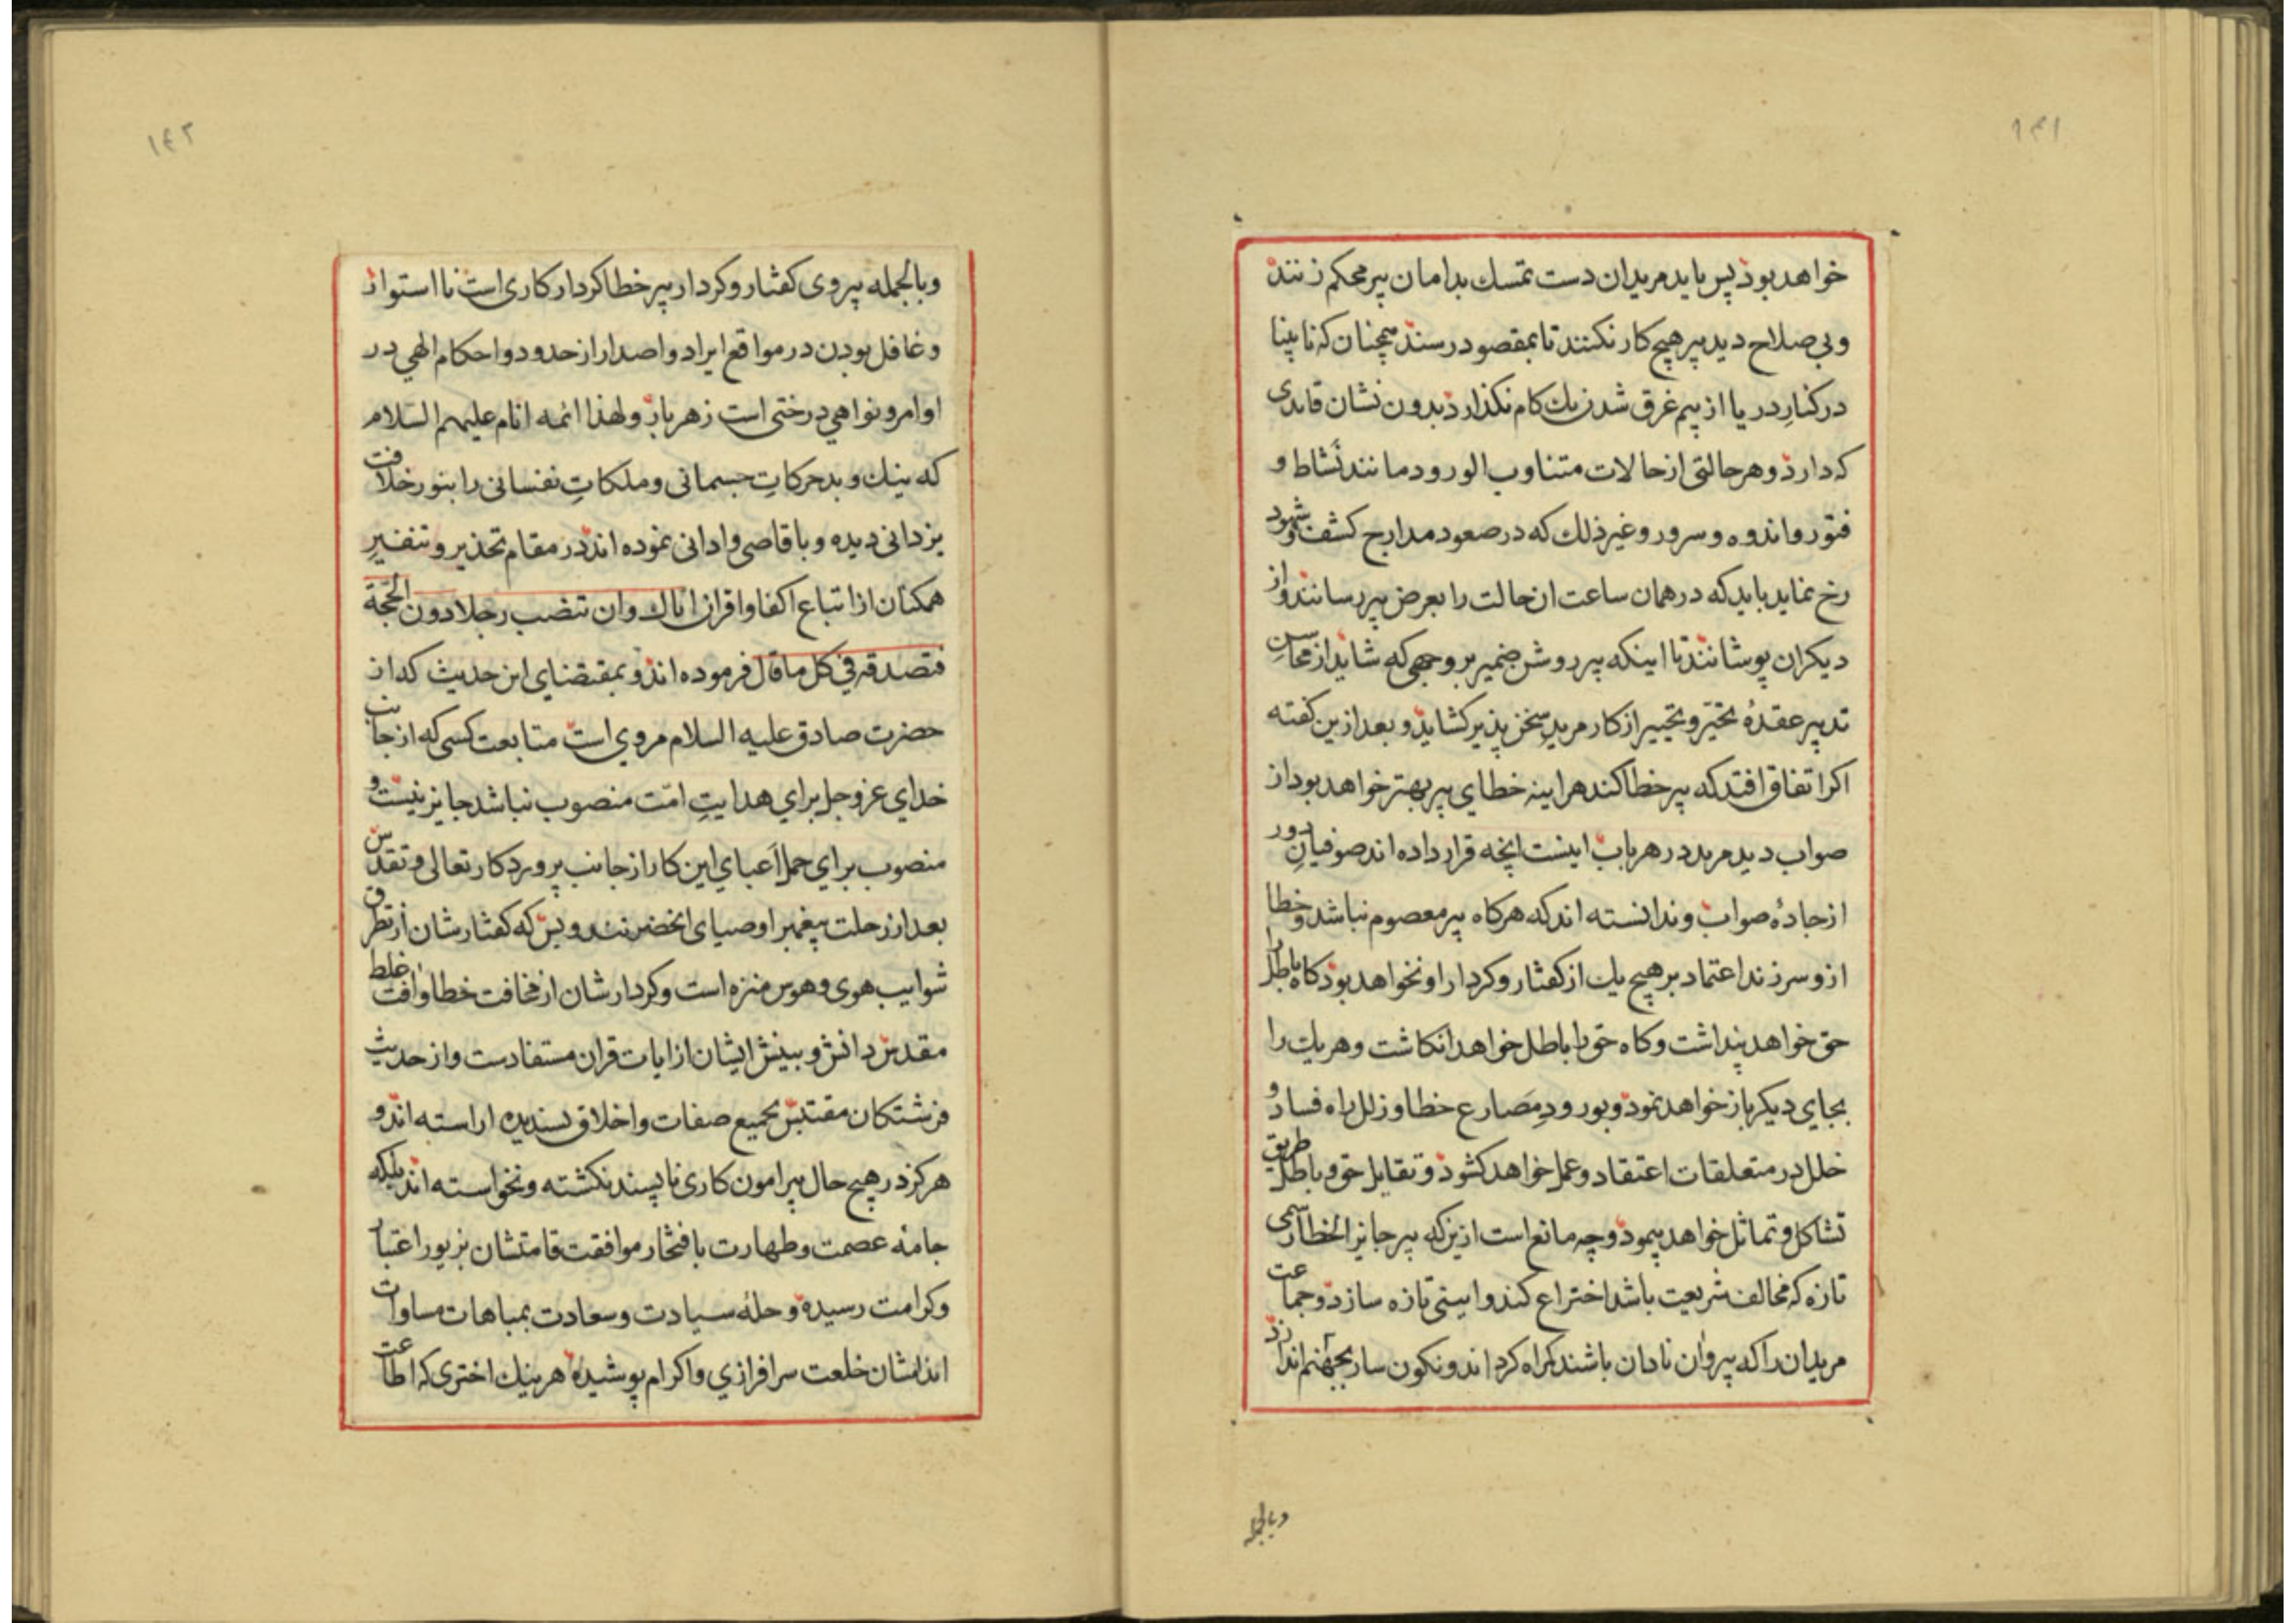 ۱۴۱
خواهد بود پس باید مریدان دست تمسك بدامان پیر محکم زنند
و بی صلاح دید پیر هیچ کار نکنند تا بمقصود رسند همچنان که نابینا
در کنارِ دریا از بیم غرق شدن یك کام نکذارد بدون نشان قایدی
که دارد و هر حالتی از حالات متناوب الورود مانند نَشاط و
فتور و اندوه و سرور و غیر ذلك که در صعود مدارج کشف و شهود
رخ نماید باید که در همان ساعت ان حالت را بعرض پیر رسانند و از
دیکران پوشانند تا اینکه پیر روشن ضمیر بر وجهی که شاید از محاسنِ
تدبیر عقدهٔ تحیّر و تحییر از کار مریدِ سخن پذیر کشاید و بعد ازین کفته
اکر اتفاق افتد که پیر خطا کند هراینه خطای پیر بهتر خواهد بود از
صواب دید مرید در هر باب اینست انچه قرار داده اند صوفیانِ دور
از جادهٔ صواب و ندانسته اند که هر کاه پیر معصوم نباشد و خطا
ازو سر زند اعتماد بر هیچ یك از کفتار و کردار او نخواهد بود کاه باطل را
حق خواهد پنداشت و کاه حق را باطل خواهد انکاشت و هر یك را
بجای دیکر باز خواهد نمود و بورودِ مَصارع خطا و زلل راه فساد و
خلل در متعلقات اعتقاد و عمل خواهد کشود و تقابل حق و باطل طریق
تشاکل و تماثل خواهد پیمود و چه مانع است ازین که پیر جایز الخطا رسمی
تازه که مخالف شریعت باشد اختراع کند و ایینی تازه سازد و جماعت
مریدان را که پیروان نادان باشند کمراه کرداند و نکون سار بجهنم اندازد
وبالجمله
۱۴۲
وبالجمله پیروی کفتار و کردار پیر خطا کردار کاری است نااستوار
و غافل بودن در مواقع ایراد و اصدار از حدود و احکام الهی در
اوامر و نواهی درختی است زهر بار و لهذا ائمه انام علیهم السّلام
که نیك و بد حرکاتِ جسمانی و ملکاتِ نفسانی را بنور خلافت
یزدانی دیده و با قاصی و ادانی نموده اند در مقام تحذیر و تنفیرِ
همکنان از اتباع اکفا و اقران ایاك وان تنصب رجلا دون الحجّة
فتصدقه فی کل ما قال فرموده اند و بمقتضای این حدیث که از
حضرت صادق علیه السلام مروی است متابعت کسی که از جانب
خدای عز و جل برای هدایتِ امّت منصوب نباشد جایز نیست و
منصوب برای حمل اَعبای این کار از جانب پروردکار تعالی و تقدس
بعد از رحلت پیغمبر اوصیای انحضرتند و بس که کفتارشان از تطرق
شوایب هوی و هوس منزه است و کردارشان از مخافت خطا و افت غلط
مقدس دانش و بینش ایشان از ایات قران مستفادست و از حدیث
فرشتکان مقتبس بجمیع صفات و اخلاق پسندیده اراسته اند و
هرکز در هیچ حال پیرامون کاری ناپسند نکشته و نخواسته اند بلکه
جامهٔ عصمت و طهارت بافتخار موافقت قامتشان بزیور اعتبار
و کرامت رسیده و حلهٔ سیادت و سعادت بمباهات مساوات
اندامشان خلعت سرافرازی و اکرام پوشیده هر نیك اختری که اطاعت